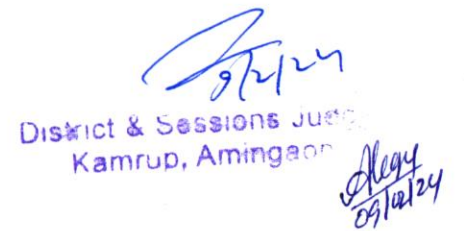 9/2/24
District & Sessions Jud
Kamrup, Amingaon
09/02/24